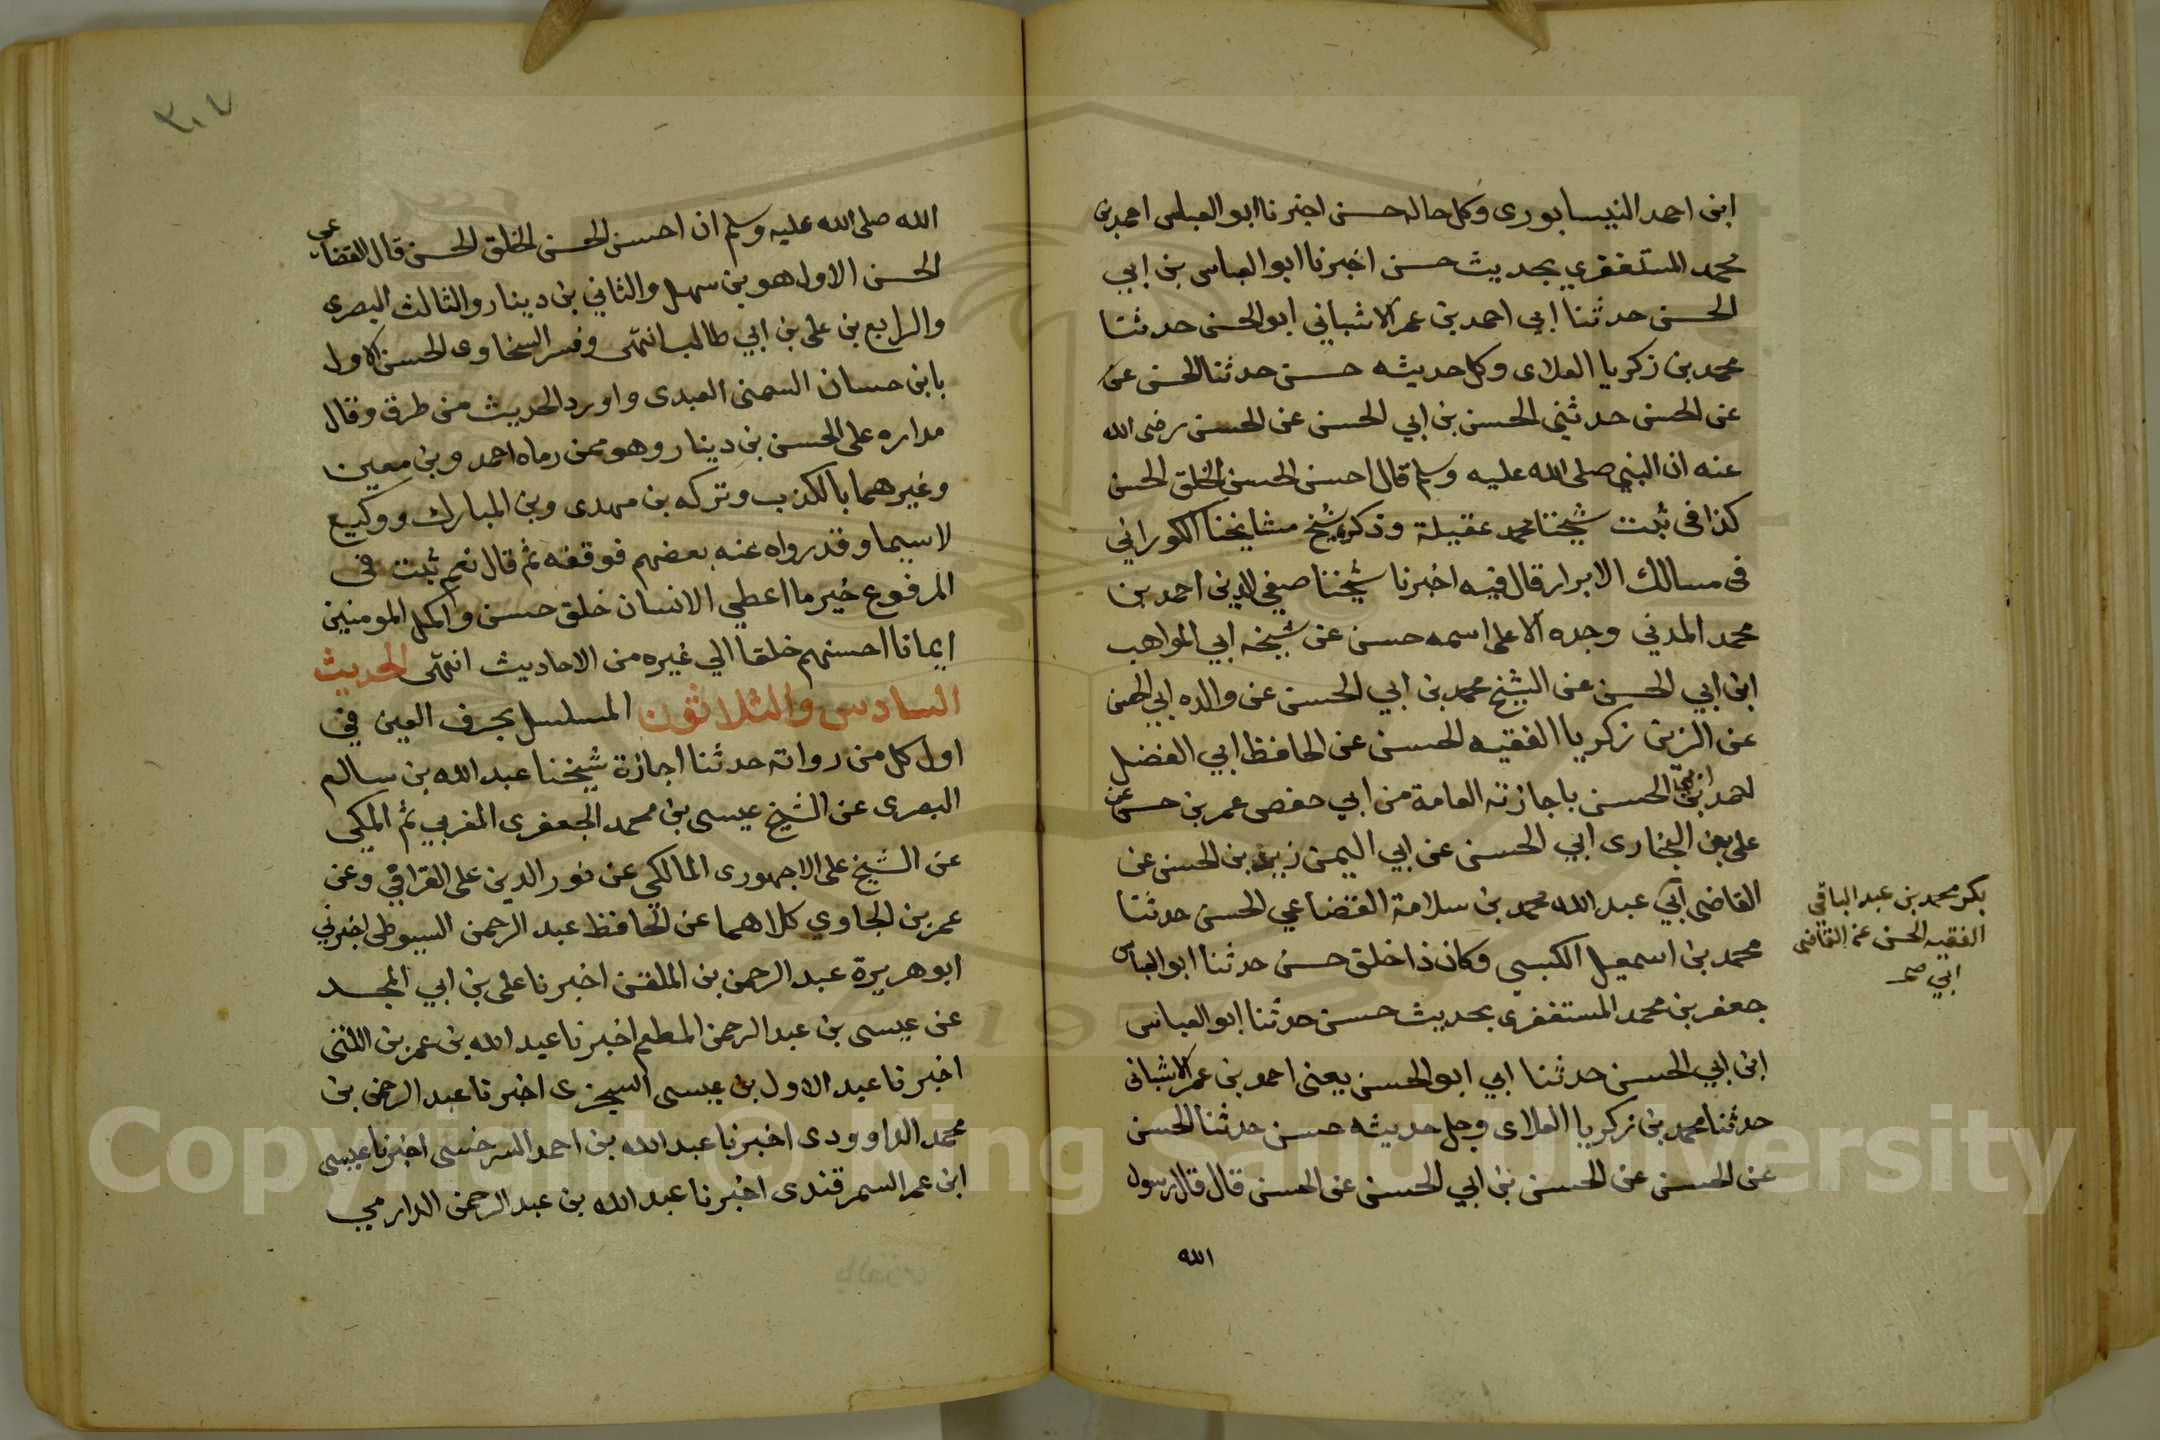 ابن احمد النيسابورى وكل حاله حسن اخبرنا ابو العباس احمد بن
محمد المستغفري بحديث حسن اخبرنا ابو العباس بن ابي
الحسن حدثنا ابي احمد بن عمر الاشباني ابو الحسن حدثنا
محمد بن زكريا العلاى وكل حديثه حسن حدثنا الحسن عن
عن الحسن حدثني الحسن بن ابي الحسن عن الحسن رضى الله
عنه ان النبي صلى الله عليه وسلم قال احسن الحسن الخلق الحسن
كذا فى ثبت شيخنا محمد عقيلة وذكره شيخ مشايخنا الكوراني
فى مسالك الابرار قال فيه اخبرنا شيخنا صفي الدين احمد بن
محمد المدني وجده الاعلى اسمه حسن عن شيخه ابي المواهب
ابن ابي الحسن عن الشيخ محمد بن ابي الحسن عن والده ابي الحسن
عن الزين زكريا الفقيه الحسن عن الحافظ ابي الفضل
احمد ابن ابي الحسن باجازته العامة من ابي حفص عمر بن حسن عن
على بن البخارى ابي الحسن عن ابي اليمن زيد بن الحسن عن
بكر محمد بن عبد الباقى
الفقيه الحسن عن القاضى
ابي صح
القاضى ابي عبد الله محمد بن سلامة القضاعي الحسن حدثنا
محمد بن اسمعيل الكبسي وكان ذا خلق حسن حدثنا ابو العباس
جعفر بن محمد المستغفرى بحديث حسن حدثنا ابو العباس
ابن ابي الحسن حدثنا ابي ابو الحسن يعنى احمد بن عمر الاشبانى
حدثنا محمد بن زكريا العلاى وجل حديثه حسن حدثنا الحسن
عن الحسن عن الحسن بن ابي الحسن عن الحسن قال قال رسول
الله
٣٠٧
الله صلى الله عليه وسلم ان احسن الحسن الخلق الحسن قال القضاعي
الحسن الاول هو بن سهل والثاني بن دينار والثالث البصرى
والرابع بن على بن ابي طالب انتهى وفسر السخاوى الحسن الاول
بابن حسان السمنى العبدى واورد الحديث من طرق وقال
مداره على الحسن بن دينار وهو ممن رماه احمد وبن معين
وغيرهما بالكذب وتركه بن مهدى وبن المبارك ووكيع
لاسيما وقد رواه عنه بعضهم فوقفه ثم قال نعم ثبت فى
المرفوع خير ما اعطي الانسان خلق حسن واكمل المومنين
ايمانا احسنهم خلقا الي غيره من الاحاديث انتهى الحديث
السادس والثلاثون المسلسل بحرف العين في
اول كل من رواته حدثنا اجازة شيخنا عبد الله بن سالم
البصرى عن الشيخ عيسى بن محمد الجعفرى المغربي ثم المكي
عن الشيخ على الاجهورى المالكي عن نور الدين على القرافي وعن
عمر بن الجاوي كلاهما عن الحافظ عبد الرحمن السيوطى اخبرني
ابو هريرة عبد الرحمن بن الملقن اخبرنا على بن ابي المجد
عن عيسى بن عبد الرحمن المطعم اخبرنا عبد الله بن عمر بن اللتى
اخبرنا عبد الاول بن عيسى السجزى اخبرنا عبد الرحمن بن
محمد الداوودى اخبرنا عبد الله بن احمد السرخسى اخبرنا عيسى
ابن عمر السمرقندى اخبرنا عبد الله بن عبد الرحمن الدارمي
Copyright © King Saud University